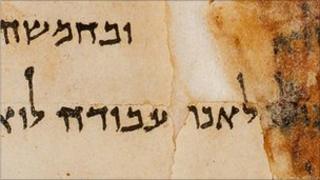 ובחמשה
לאכת עבודה לוא